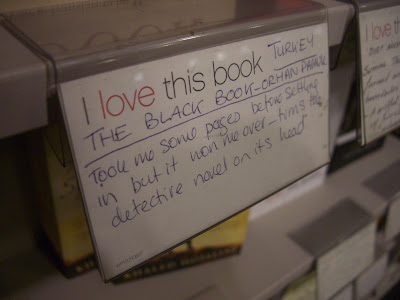 I love this book TURKEY
THE BLACK BOOK - ORHAN PAMUK
Took me some pages before settling
in but it won me over - turns the
detective novel on its head
I love
KHALED HOSSEINI